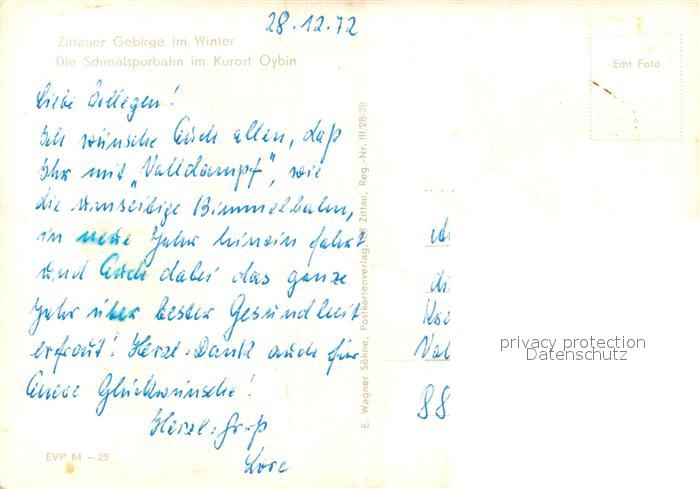 28.12.72
Zittauer Gebirge im Winter
Die Schmalspurbahn im Kurort Oybin
Echt Foto
Liebe Kollegen!
Ich wünsche Euch allen, daß
Ihr mit „Volldampf", wie
die umseitige Bimmelbahn,
in neue Jahr hinein fahrt
und Euch dabei das ganze
Jahr über bester Gesundheit
erfreut! Herzl. Dank auch für
Eure Glückwünsche!
Herzl. Gruß
Lore
EVP M –.25
E. Wagner Söhne, Postkartenverlag, Zittau, Reg.-Nr. III.28.38
An
di
Vol
88
privacy protection
Datenschutz